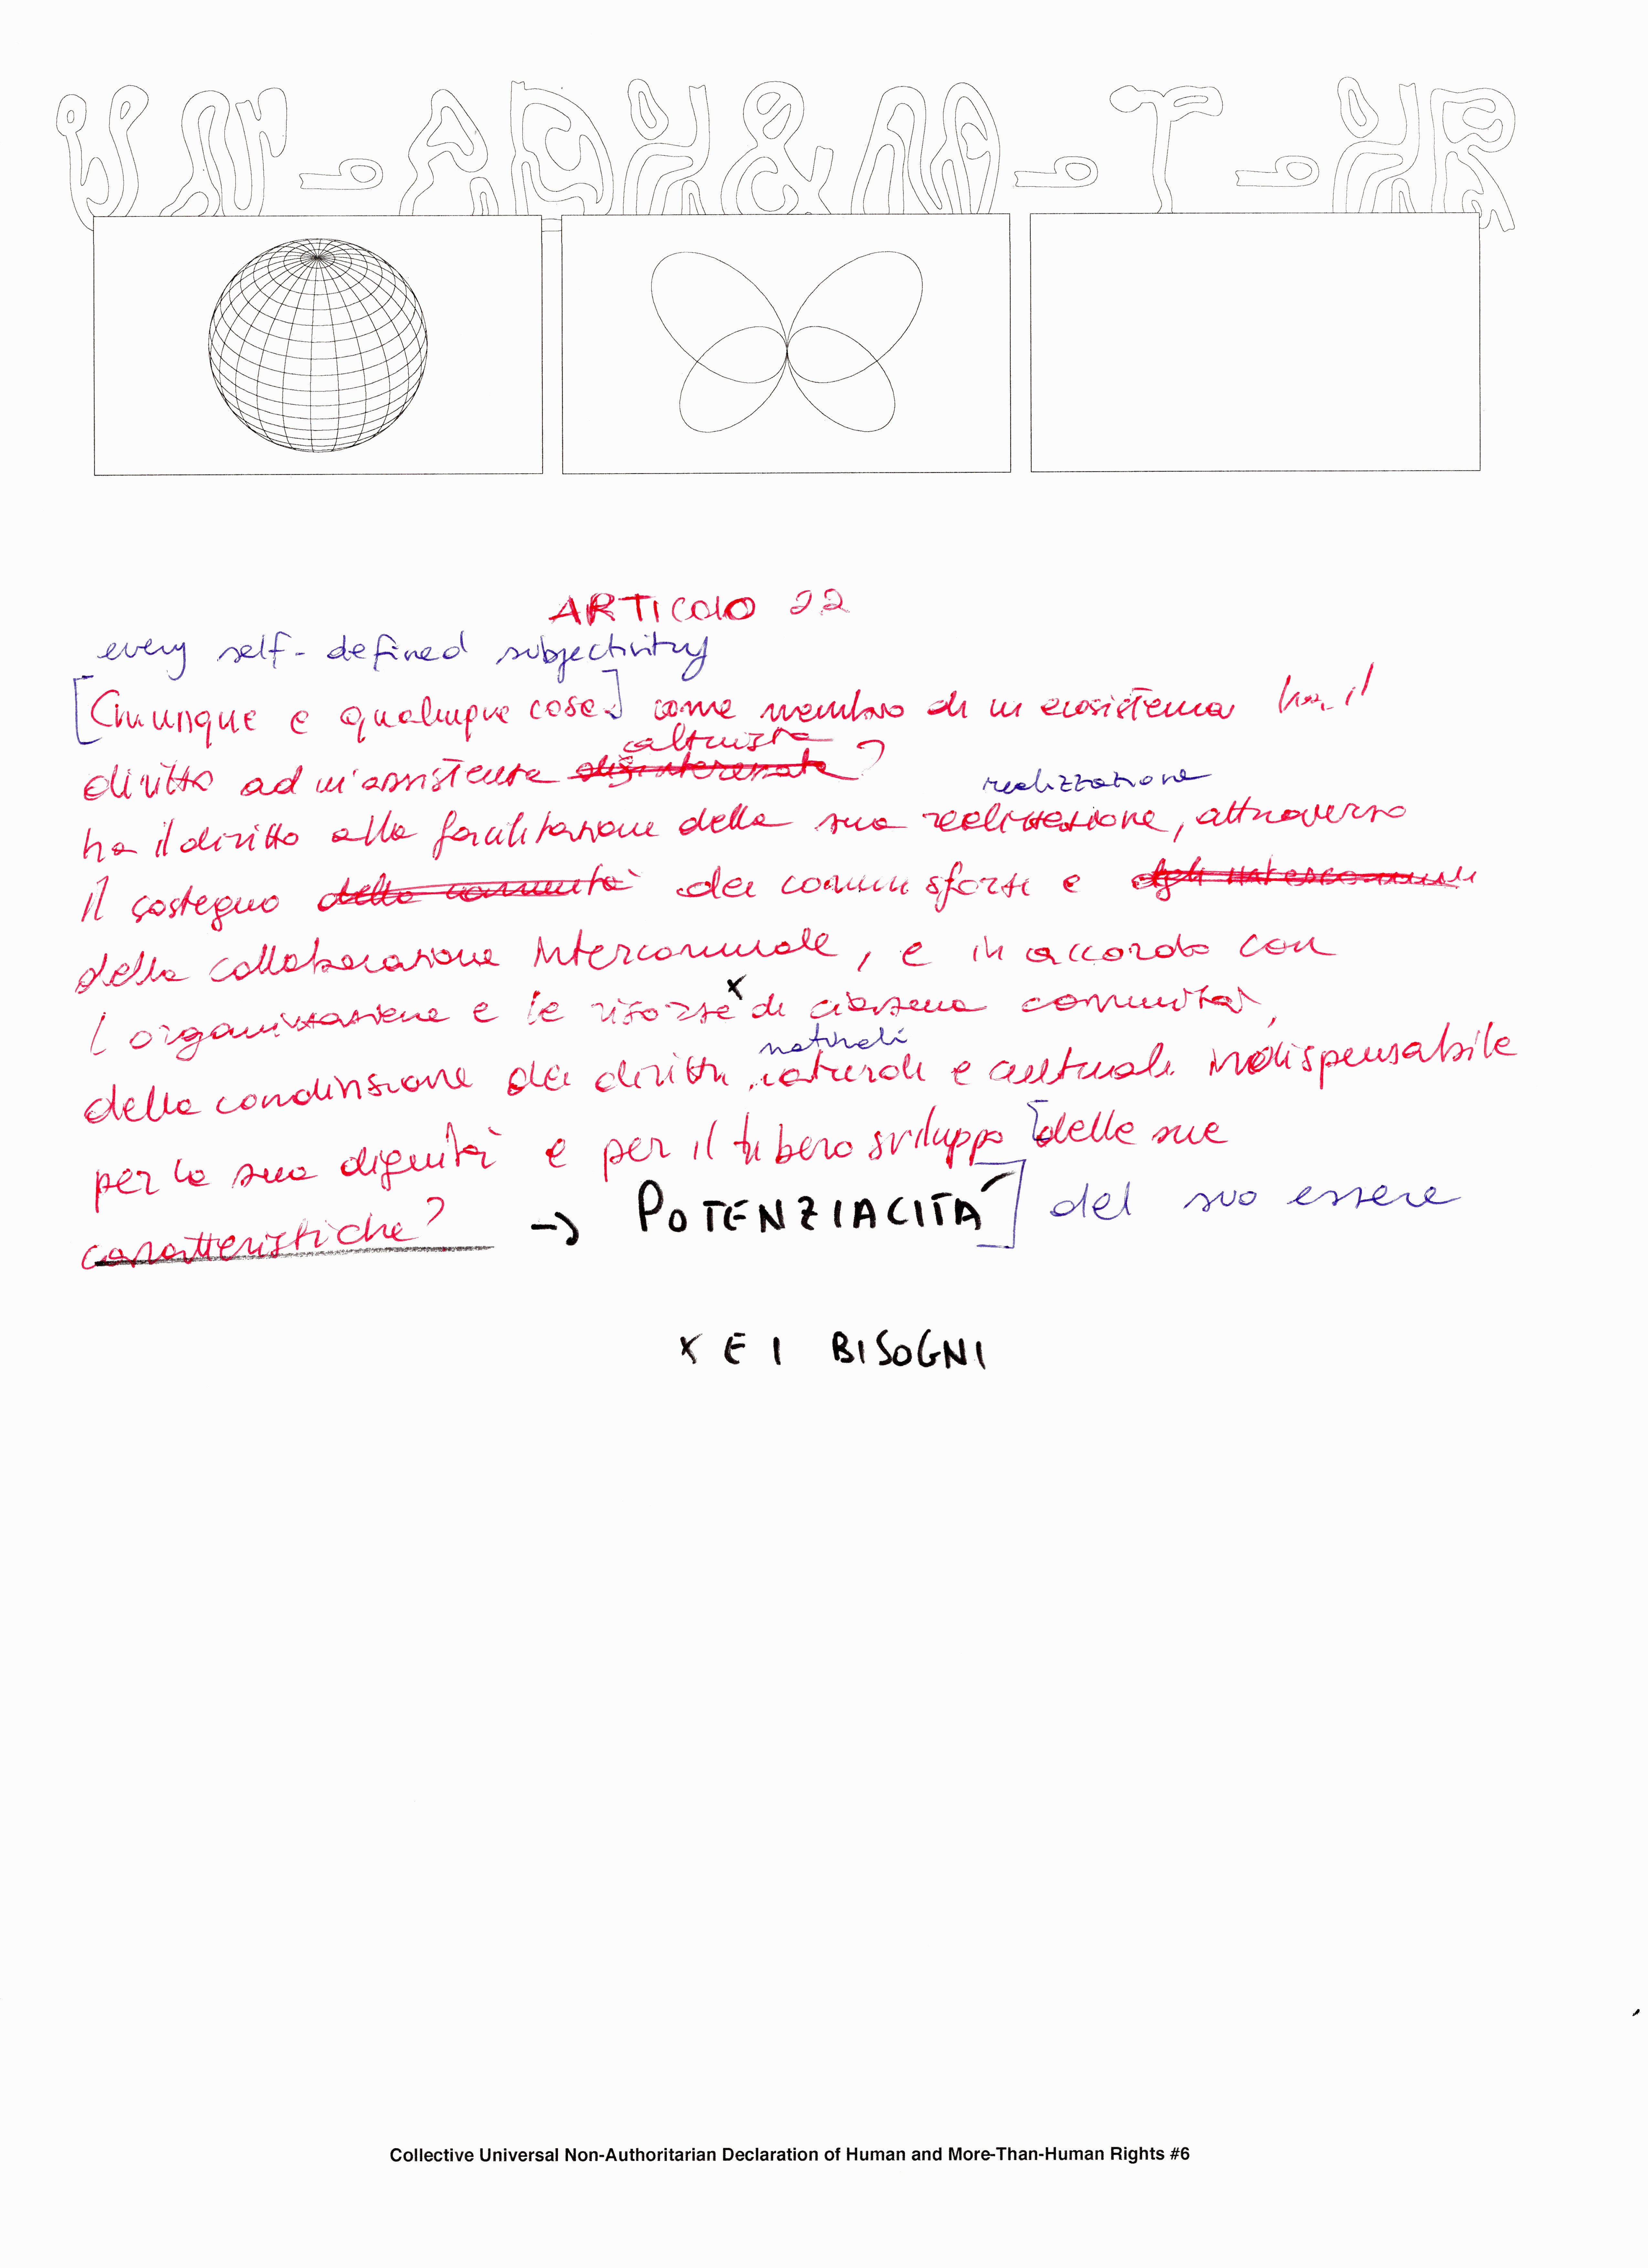 UN-ADH&M-T-HR
ARTICOLO 22
every self-defined subjectivity
[Chiunque e qualunque cosa] come membro di un ecosistema ha il
altruista
diritto ad un'assistenza disinteressata ?
realizzazione
ha il diritto alla facilitazione della sua realizzazione, attraverso
il sostegno della comunità dei comuni sforzi e degli
della collaborazione intercomunale, e in accordo con
x
l'organizzazione e le risorse di ciascuna comunità,
naturali
della condivisione dei diritti naturali e culturali indispensabile
per la sua dignità e per il libero sviluppo [delle sue
caratteristiche? → POTENZIACITÀ] del suo essere
x E I BISOGNI
Collective Universal Non-Authoritarian Declaration of Human and More-Than-Human Rights #6